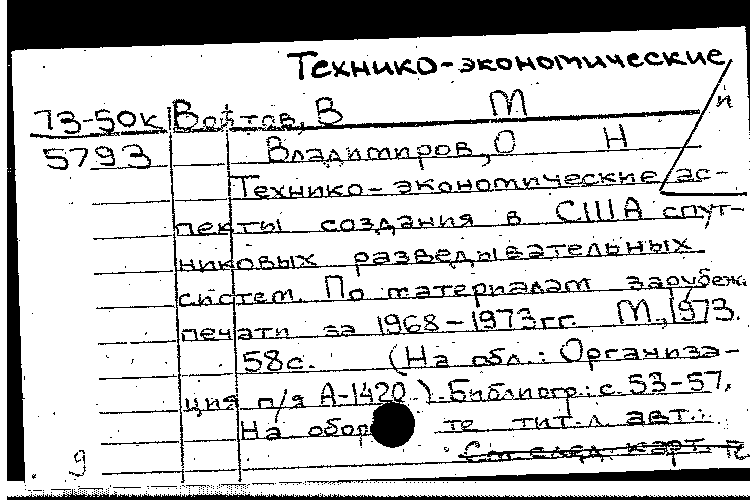 Технико-экономические
73-50к Войтов, В М
5793 Владимиров, О Н
Технико-экономические ас-
пекты создания в США спут-
никовых разведывательных
систем. По материалам зарубеж.
печати за 1968-1973гг. М., 1973.
58с. (На обл.: Организа-
ция п/я А-1420). Библиогр.: с. 53-57.
На обор те тит. л. авт.:
См след. карт.
9